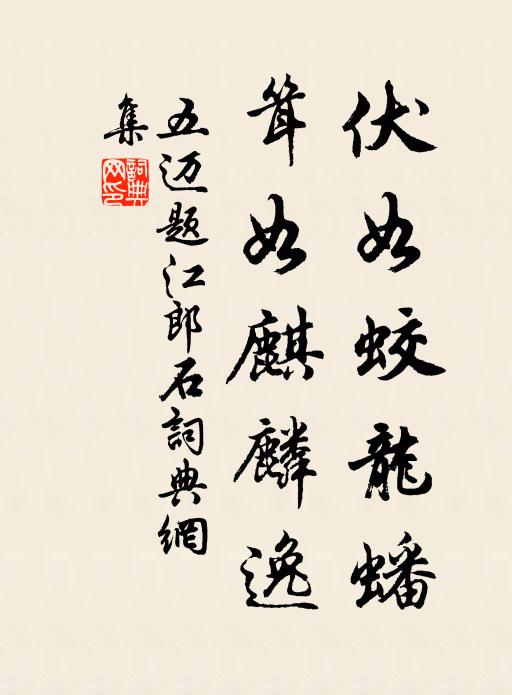 伏如蛟龍蟠
耸如麒麟逸
五迈题江郎石詞典網
集
詞典网印